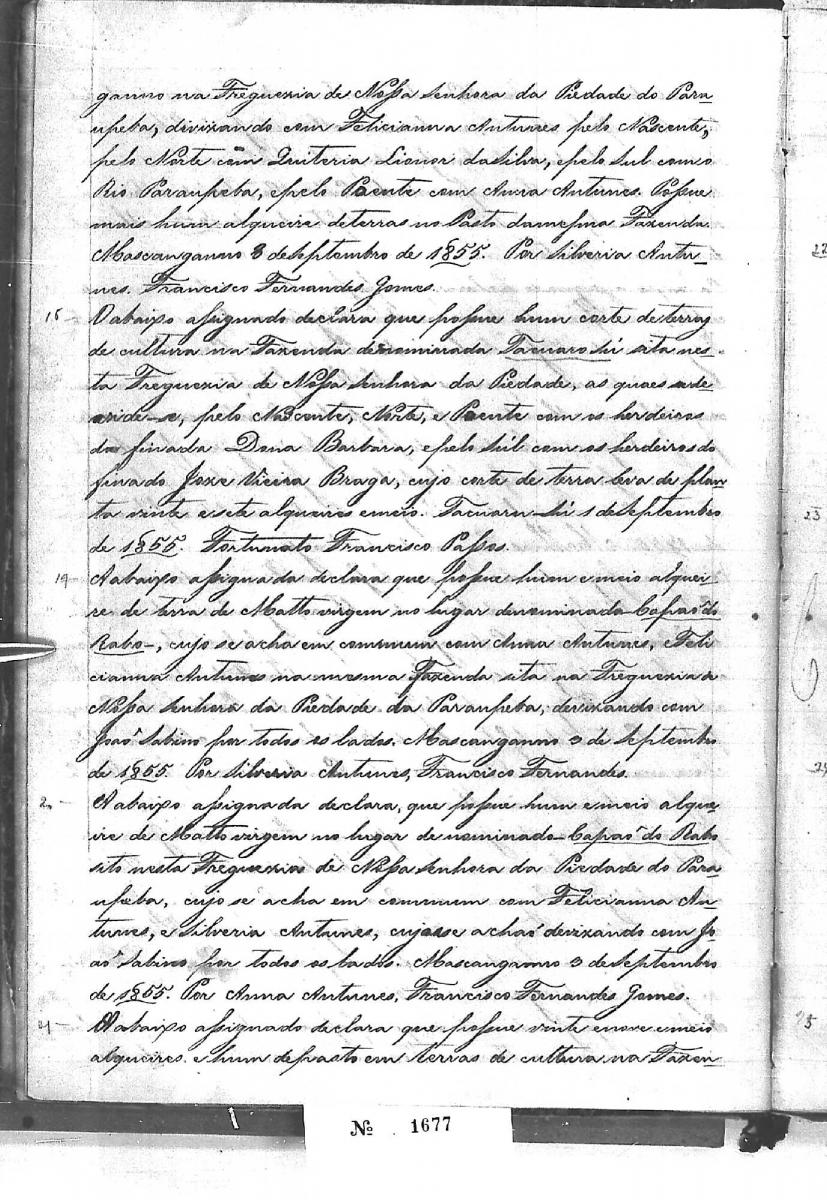 ganno na Freguezia de Nossa Senhora da Piedade do Para-
upeba, divizando com Felicianna Antunes pelo Nascente,
pelo Norte com Quiteria Lionor da Silva, e pelo Sul com o
Rio Paraupeba, e pelo Poente com Anna Antunes. Possue
mais hum alqueire de terras no Pasto da mesma Fazenda
Mascanganno 3 de Septembro de 1855. Por Silveria Antu-
nes. Francisco Fernandes Gomes.
18 - O abaixo assignado declara que possue hum corte de terras
de cultura na Fazenda denominada Tacuaro Sú sita nes-
ta Freguezia de Nossa Senhora da Piedade, as quaes se de-
vide-se, pelo Nascente, Norte, e Poente com os herdeiros
da finada Dona Barbara, e pelo Súl com os herdeiros do
finado Joze Vieira Braga, cujo corte de terra leva de plan-
ta vinte e sete alqueires e meio. Tacuaru-Sú 1 de Septembro
de 1855. Fortunato Francisco Passos.
19 - A abaixo assignada declara que possue hum e meio alquei-
re de terra de Matto virgem no lugar denominado Capaõ do
Rabo-, cujo se acha em commum com Anna Antunes, e Feli
cianna Antunes na mesma Fazenda sita na Freguezia de
Nossa Senhora da Piedade da Paraupeba, devizando com
Joaõ Sabino por todos os lados. Mascanganno 3 de Septembro
de 1855. Por Silveria Antunes, Francisco Fernandes.
2 - A abaixo assignada declara, que possue hum e meio alque-
ire de Matto virgem no lugar denominado Capaõ do Rabo
sito nesta Freguezia de Nossa Senhora da Piedade do Para
upeba, cujo se acha em commum com Felicianna An-
tunes, e Silveria Antunes, cujos se achaõ devizando com Jo-
aõ Sabino por todos os lados. Mascanganno 3 de Septembro
de 1855. Por Anna Antunes, Francisco Fernandes Gomes.
21 - O abaixo assignado declara que possue vinte e nove e meio
alqueires e hum de pasto em terras de cultura na Fazen
22
23
25
Nº 1677